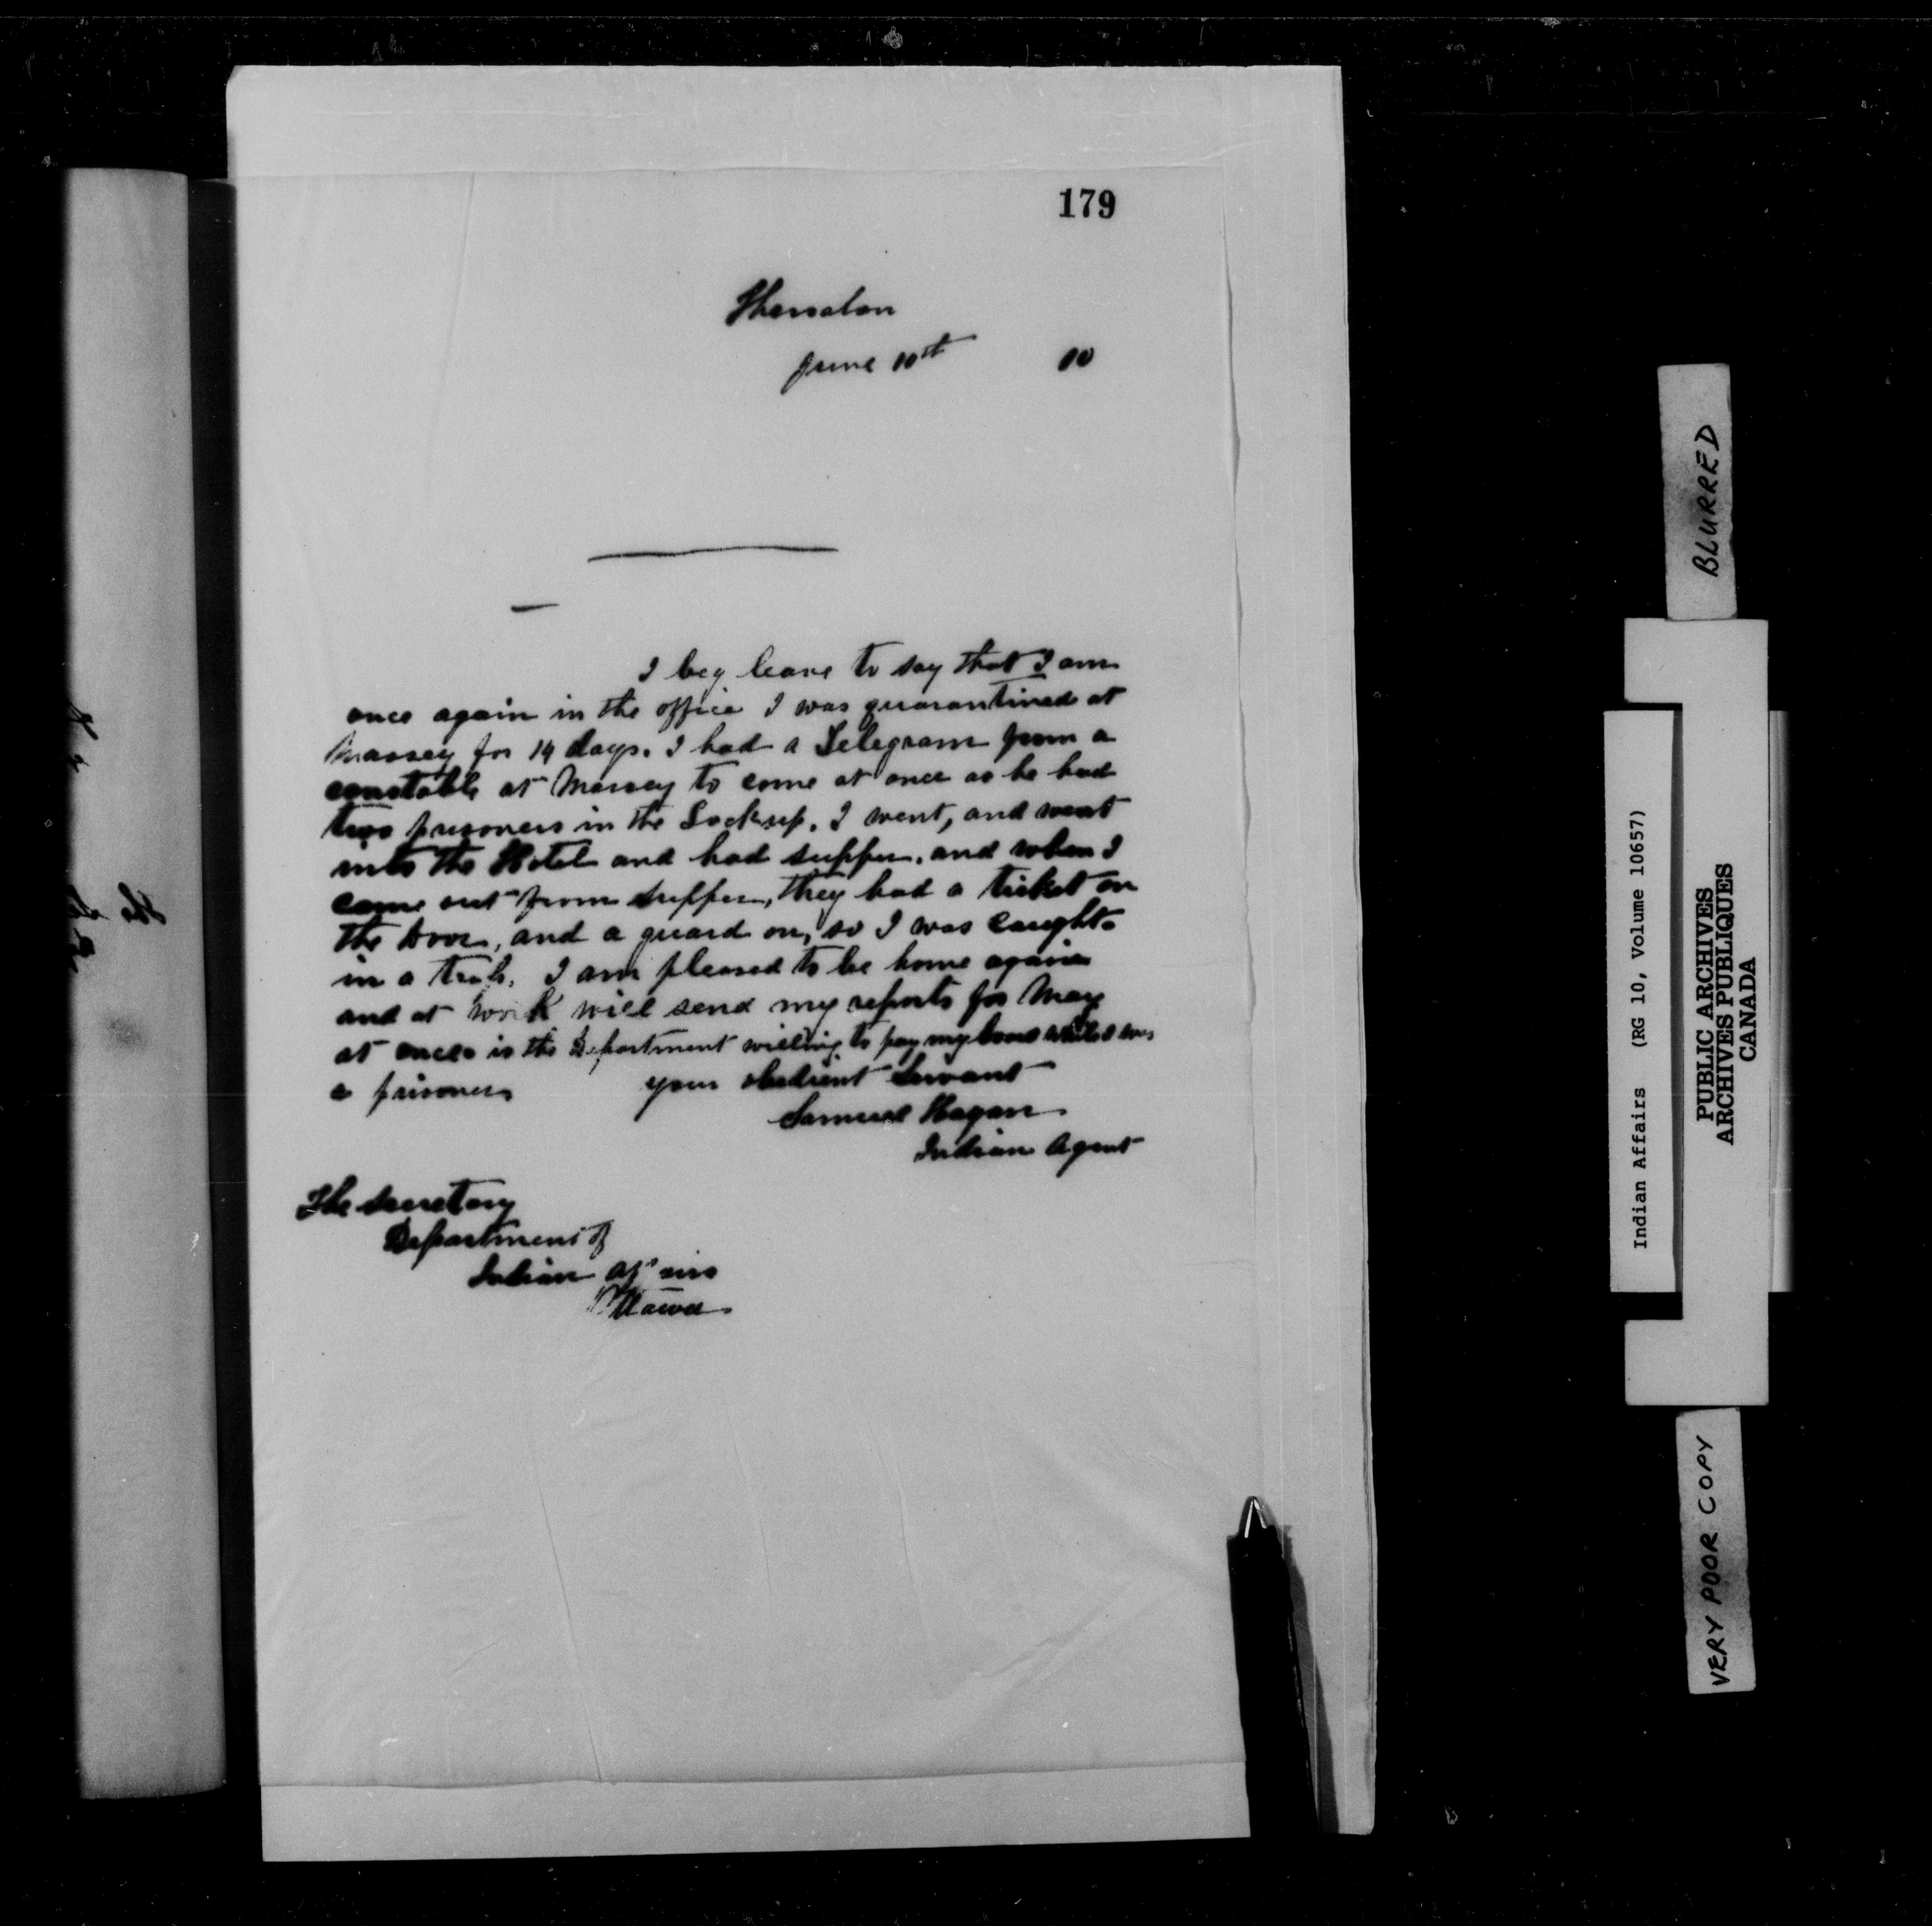 179
Thessalon
June 10th 10
I beg leave to say that I am
once again in the office I was quarantined at
Massey for 14 days. I had a Telegram from a
constable at Massey to come at once as he had
two prisoners in the Lockup. I went, and went
into the Hotel and had supper, and when I
came out from supper, they had a ticket on
the door, and a guard on, so I was caught
in a trap. I am pleased to be home again
and at work will send my reports for May
at once is the Department willing to pay my board while I was
a prisoner your obedient Servant
Samuel Hagan
Indian Agent
The Secretary
Department of
Indian Affairs
Ottawa
BLURRED
Indian Affairs (RG 10, Volume 10657)
PUBLIC ARCHIVES
ARCHIVES PUBLIQUES
CANADA
VERY POOR COPY